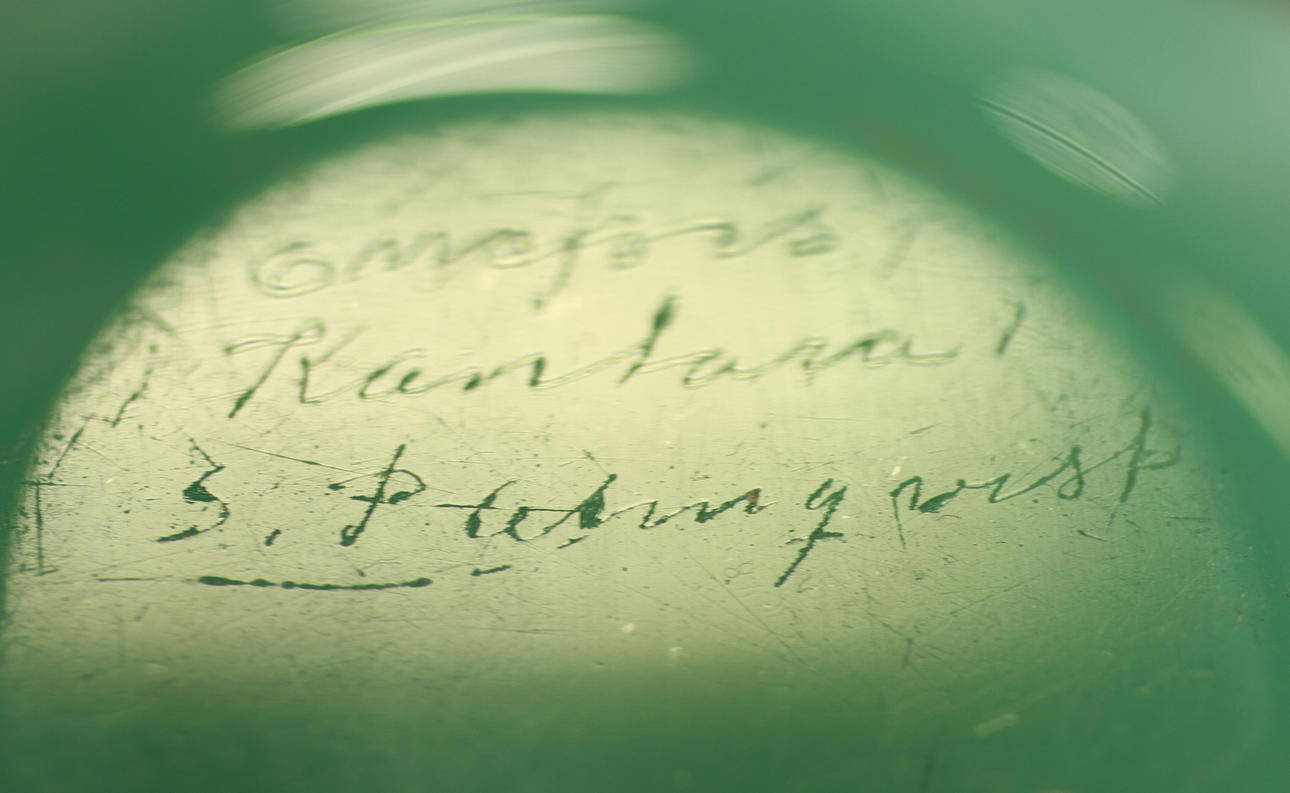 Orrefors
Kantara
S. Palmqvist